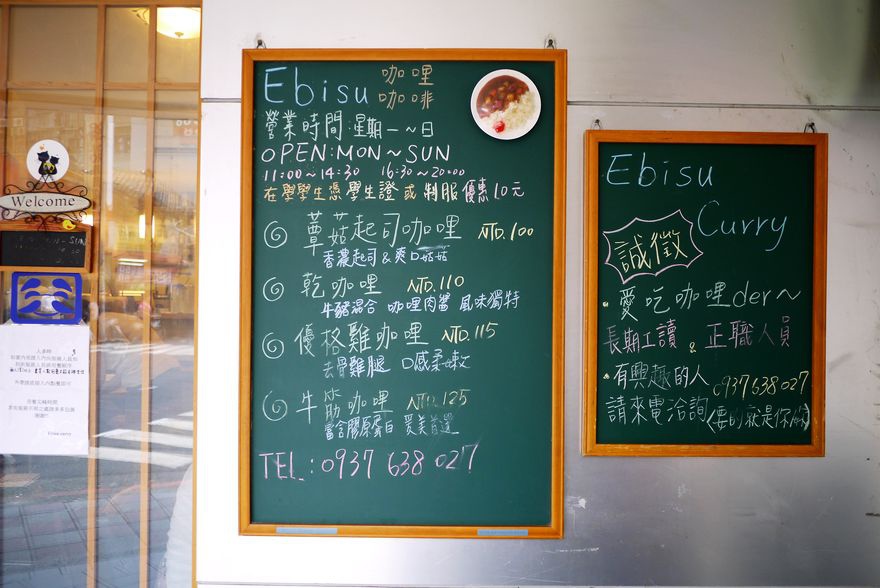 Ebisu 咖哩
咖啡
營業時間:星期一~日
OPEN:MON~SUN
11:00~14:30 16:30~20:00
在學學生憑學生證或制服優惠10元
蕈菇起司咖哩 NTD.100
香濃起司&爽口菇菇
乾咖哩 NTD.110
牛豬混合 咖哩肉醬 風味獨特
優格雞咖哩 NTD.115
去骨雞腿 口感柔嫩
牛筋咖哩 NTD.125
富含膠原蛋白 愛美首選
TEL.:0937 638 027
Ebisu
Curry
誠徵
·愛吃咖哩der~
長期工讀 & 正職人員
·有興趣的人 0937638027
請來電洽詢(要的就是你)
Welcome